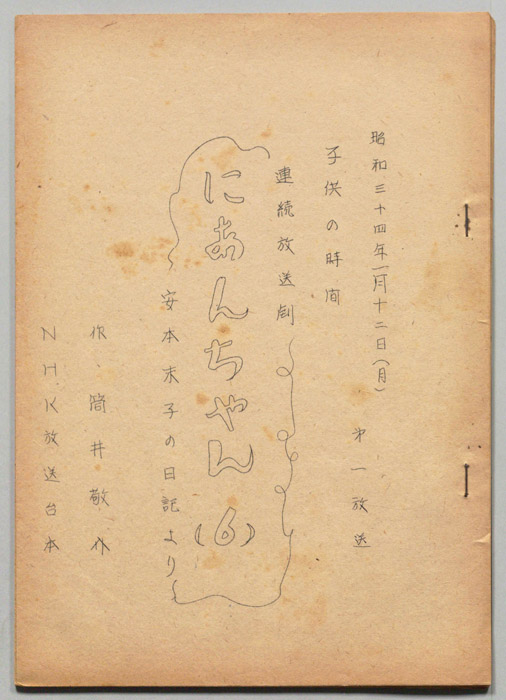 昭和三十四年一月十二日(月)
子供の時間
第一放送
連続放送劇
にあんちゃん(6)
安本末子の日記より
作 筒井敬介
NHK放送台本